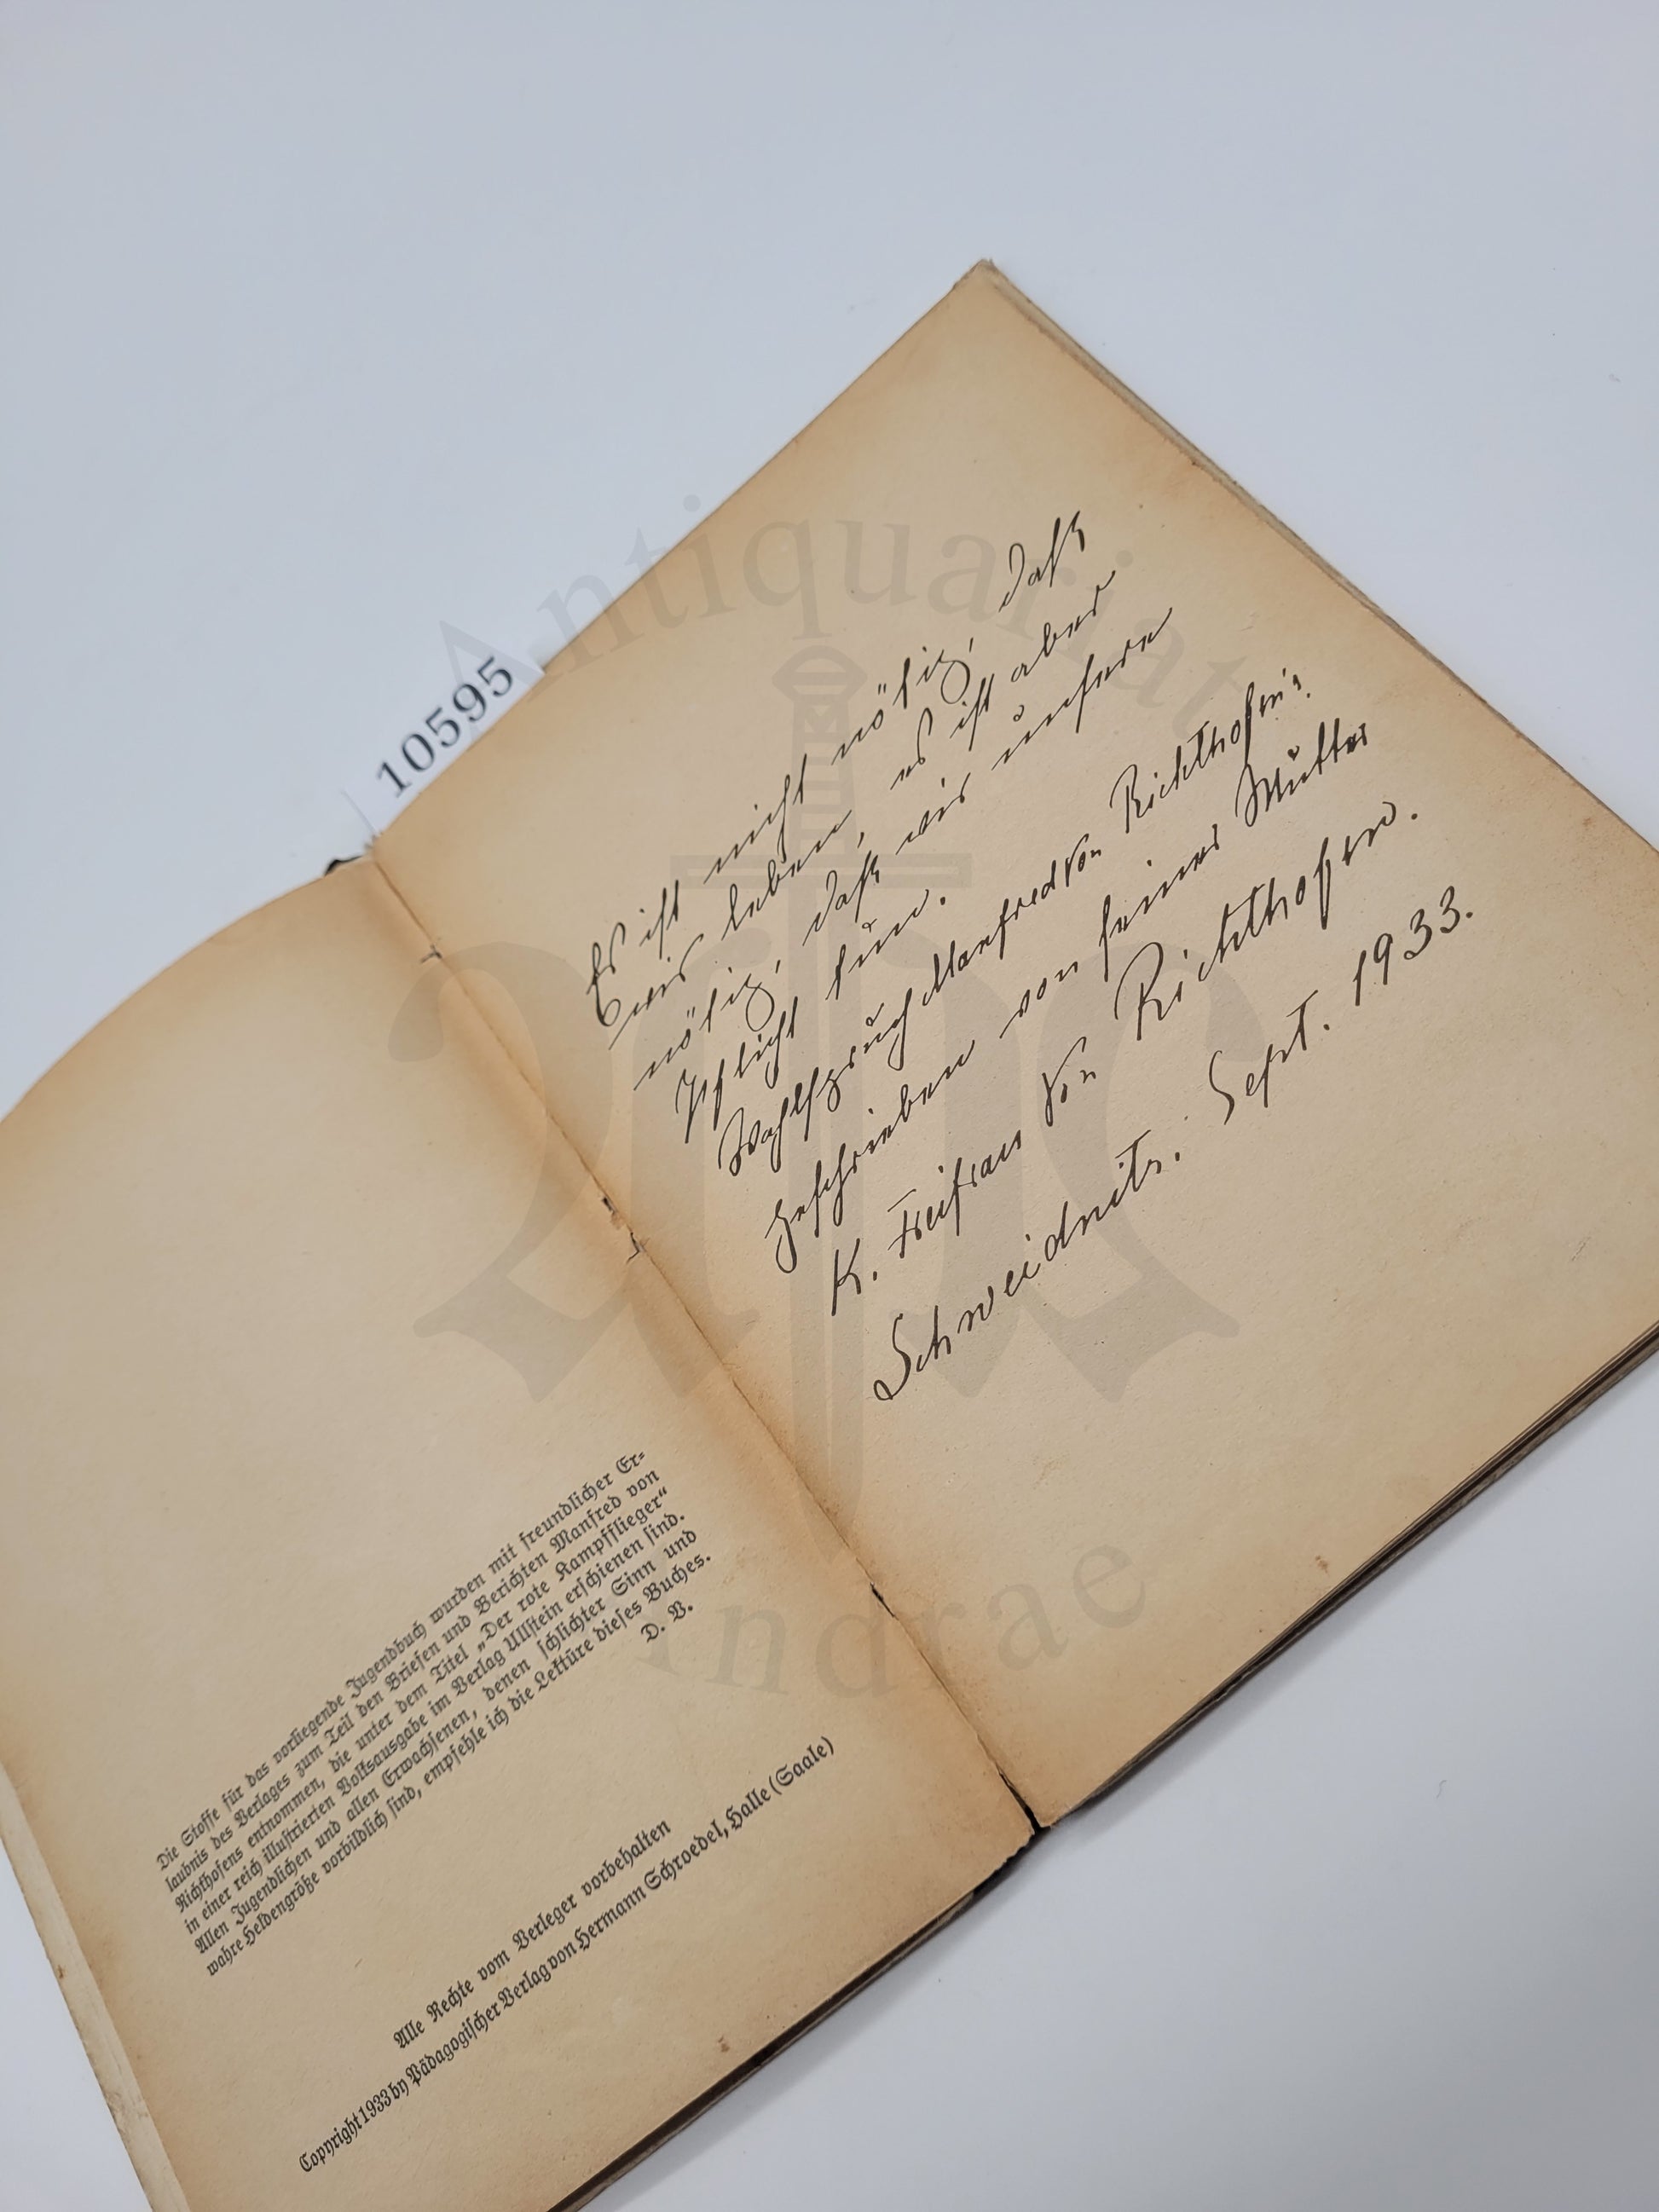 10595
Die Stoffe für das vorliegende Jugendbuch wurden mit freundlicher Er-
laubnis des Verlages zum Teil den Briefen und Berichten Manfred von
Richthofens entnommen, die unter dem Titel „Der rote Kampfflieger“
in einer reich illustrierten Volksausgabe im Verlag Ullstein erschienen sind.
Allen Jugendlichen und allen Erwachsenen, denen schlichter Sinn und
wahre Heldengröße vorbildlich sind, empfehle ich die Lektüre dieses Buches.
D. V.
Alle Rechte vom Verleger vorbehalten
Copyright 1933 by Pädagogischer Verlag von Hermann Schroedel, Halle (Saale)
Es ist nicht nötig, daß
wir leben, es ist aber
nötig, daß wir unsere
Pflicht tun.
Wahlspruch Manfred von Richthofen's.
Geschrieben von seiner Mutter
K. Freifrau von Richthofen.
Schweidnitz. Sept. 1933.
Antiquariat
Indrae